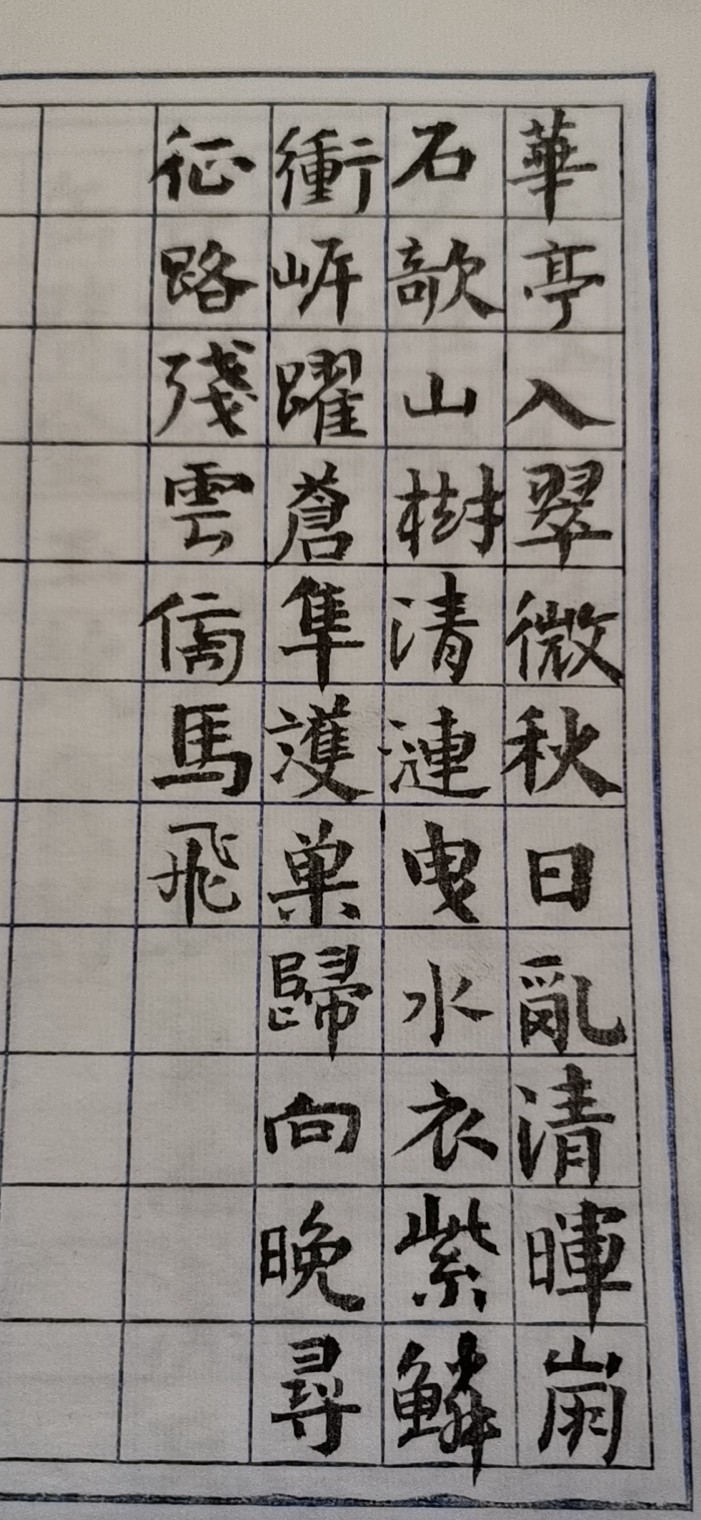 華亭入翠微秋日亂清暉崩
石欹山樹清漣曳水衣紫鱗
衝岸躍蒼隼護巢歸向晚尋
征路殘雲傍馬飛